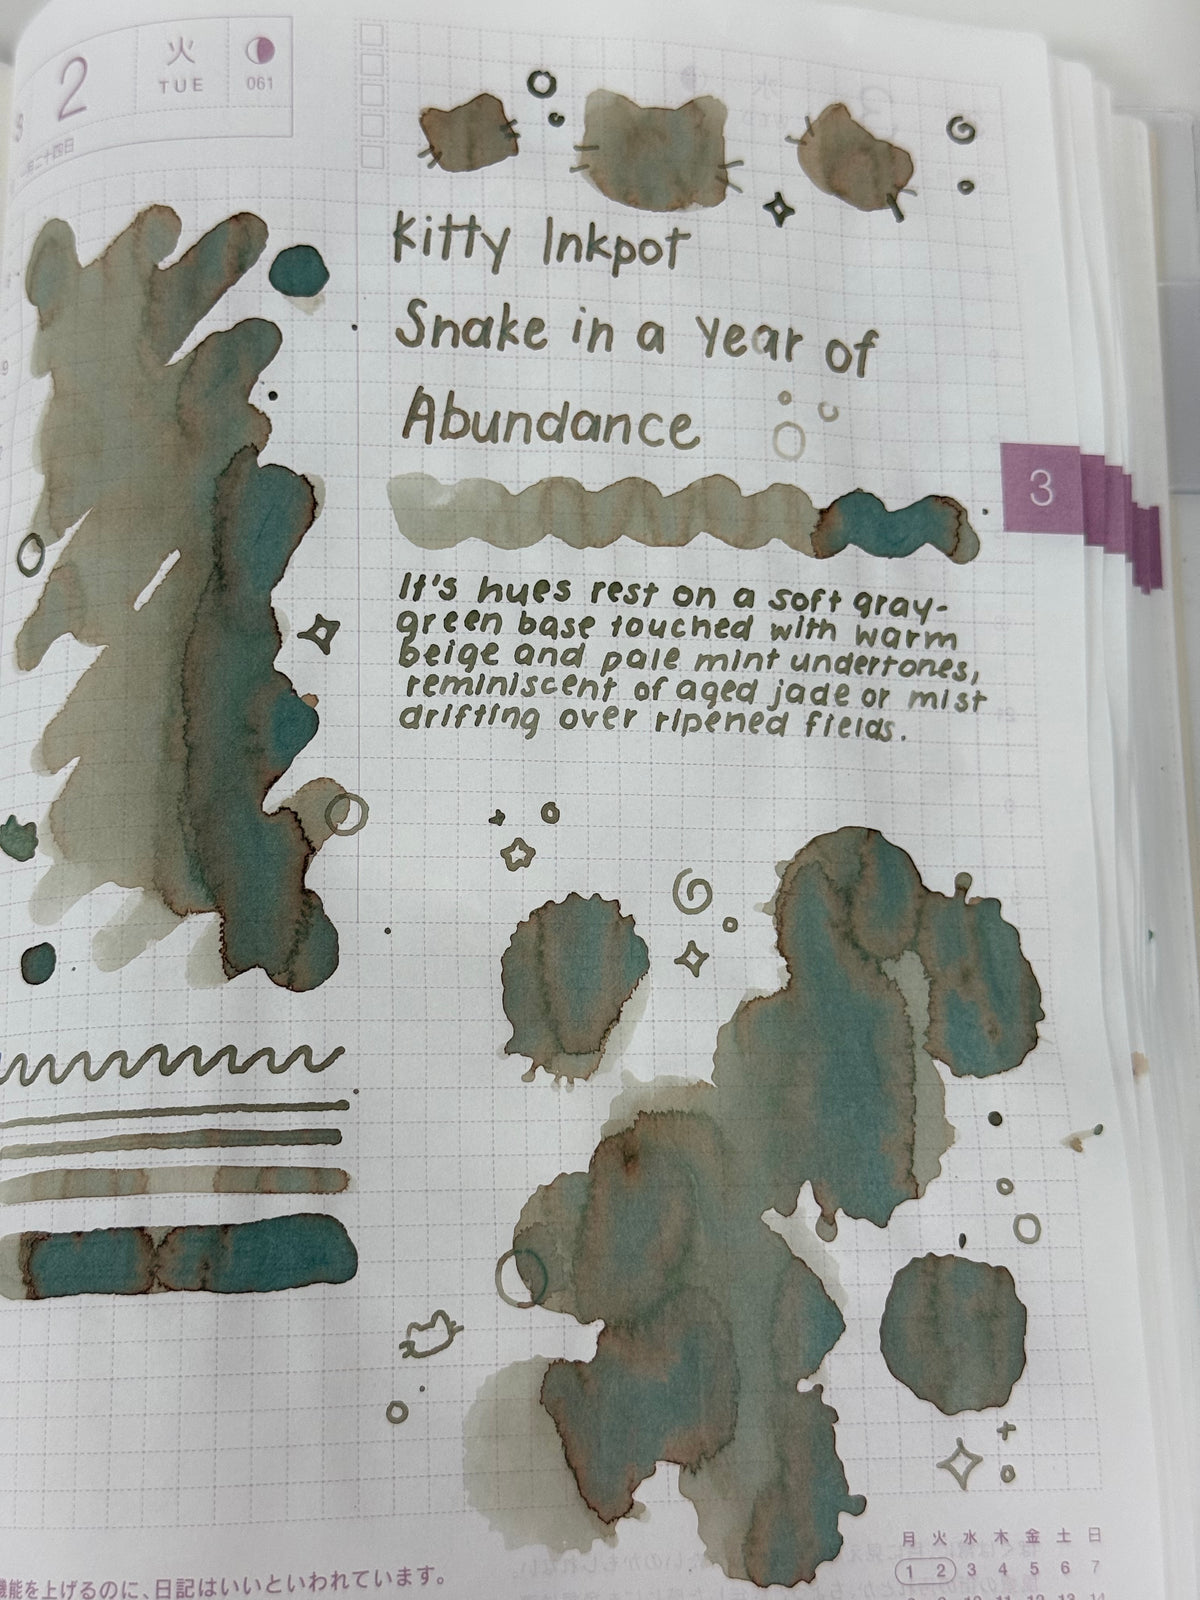 2
火
TUE
061
Kitty Inkpot
Snake in a Year of
Abundance
3
It's hues rest on a soft gray-
green base touched with warm
beige and pale mint undertones,
reminiscent of aged jade or mist
drifting over ripened fields.
月 火 水 木 金 土 日
1 2 3 4 5 6 7
機能を上げるのに、日記はいいといわれています。